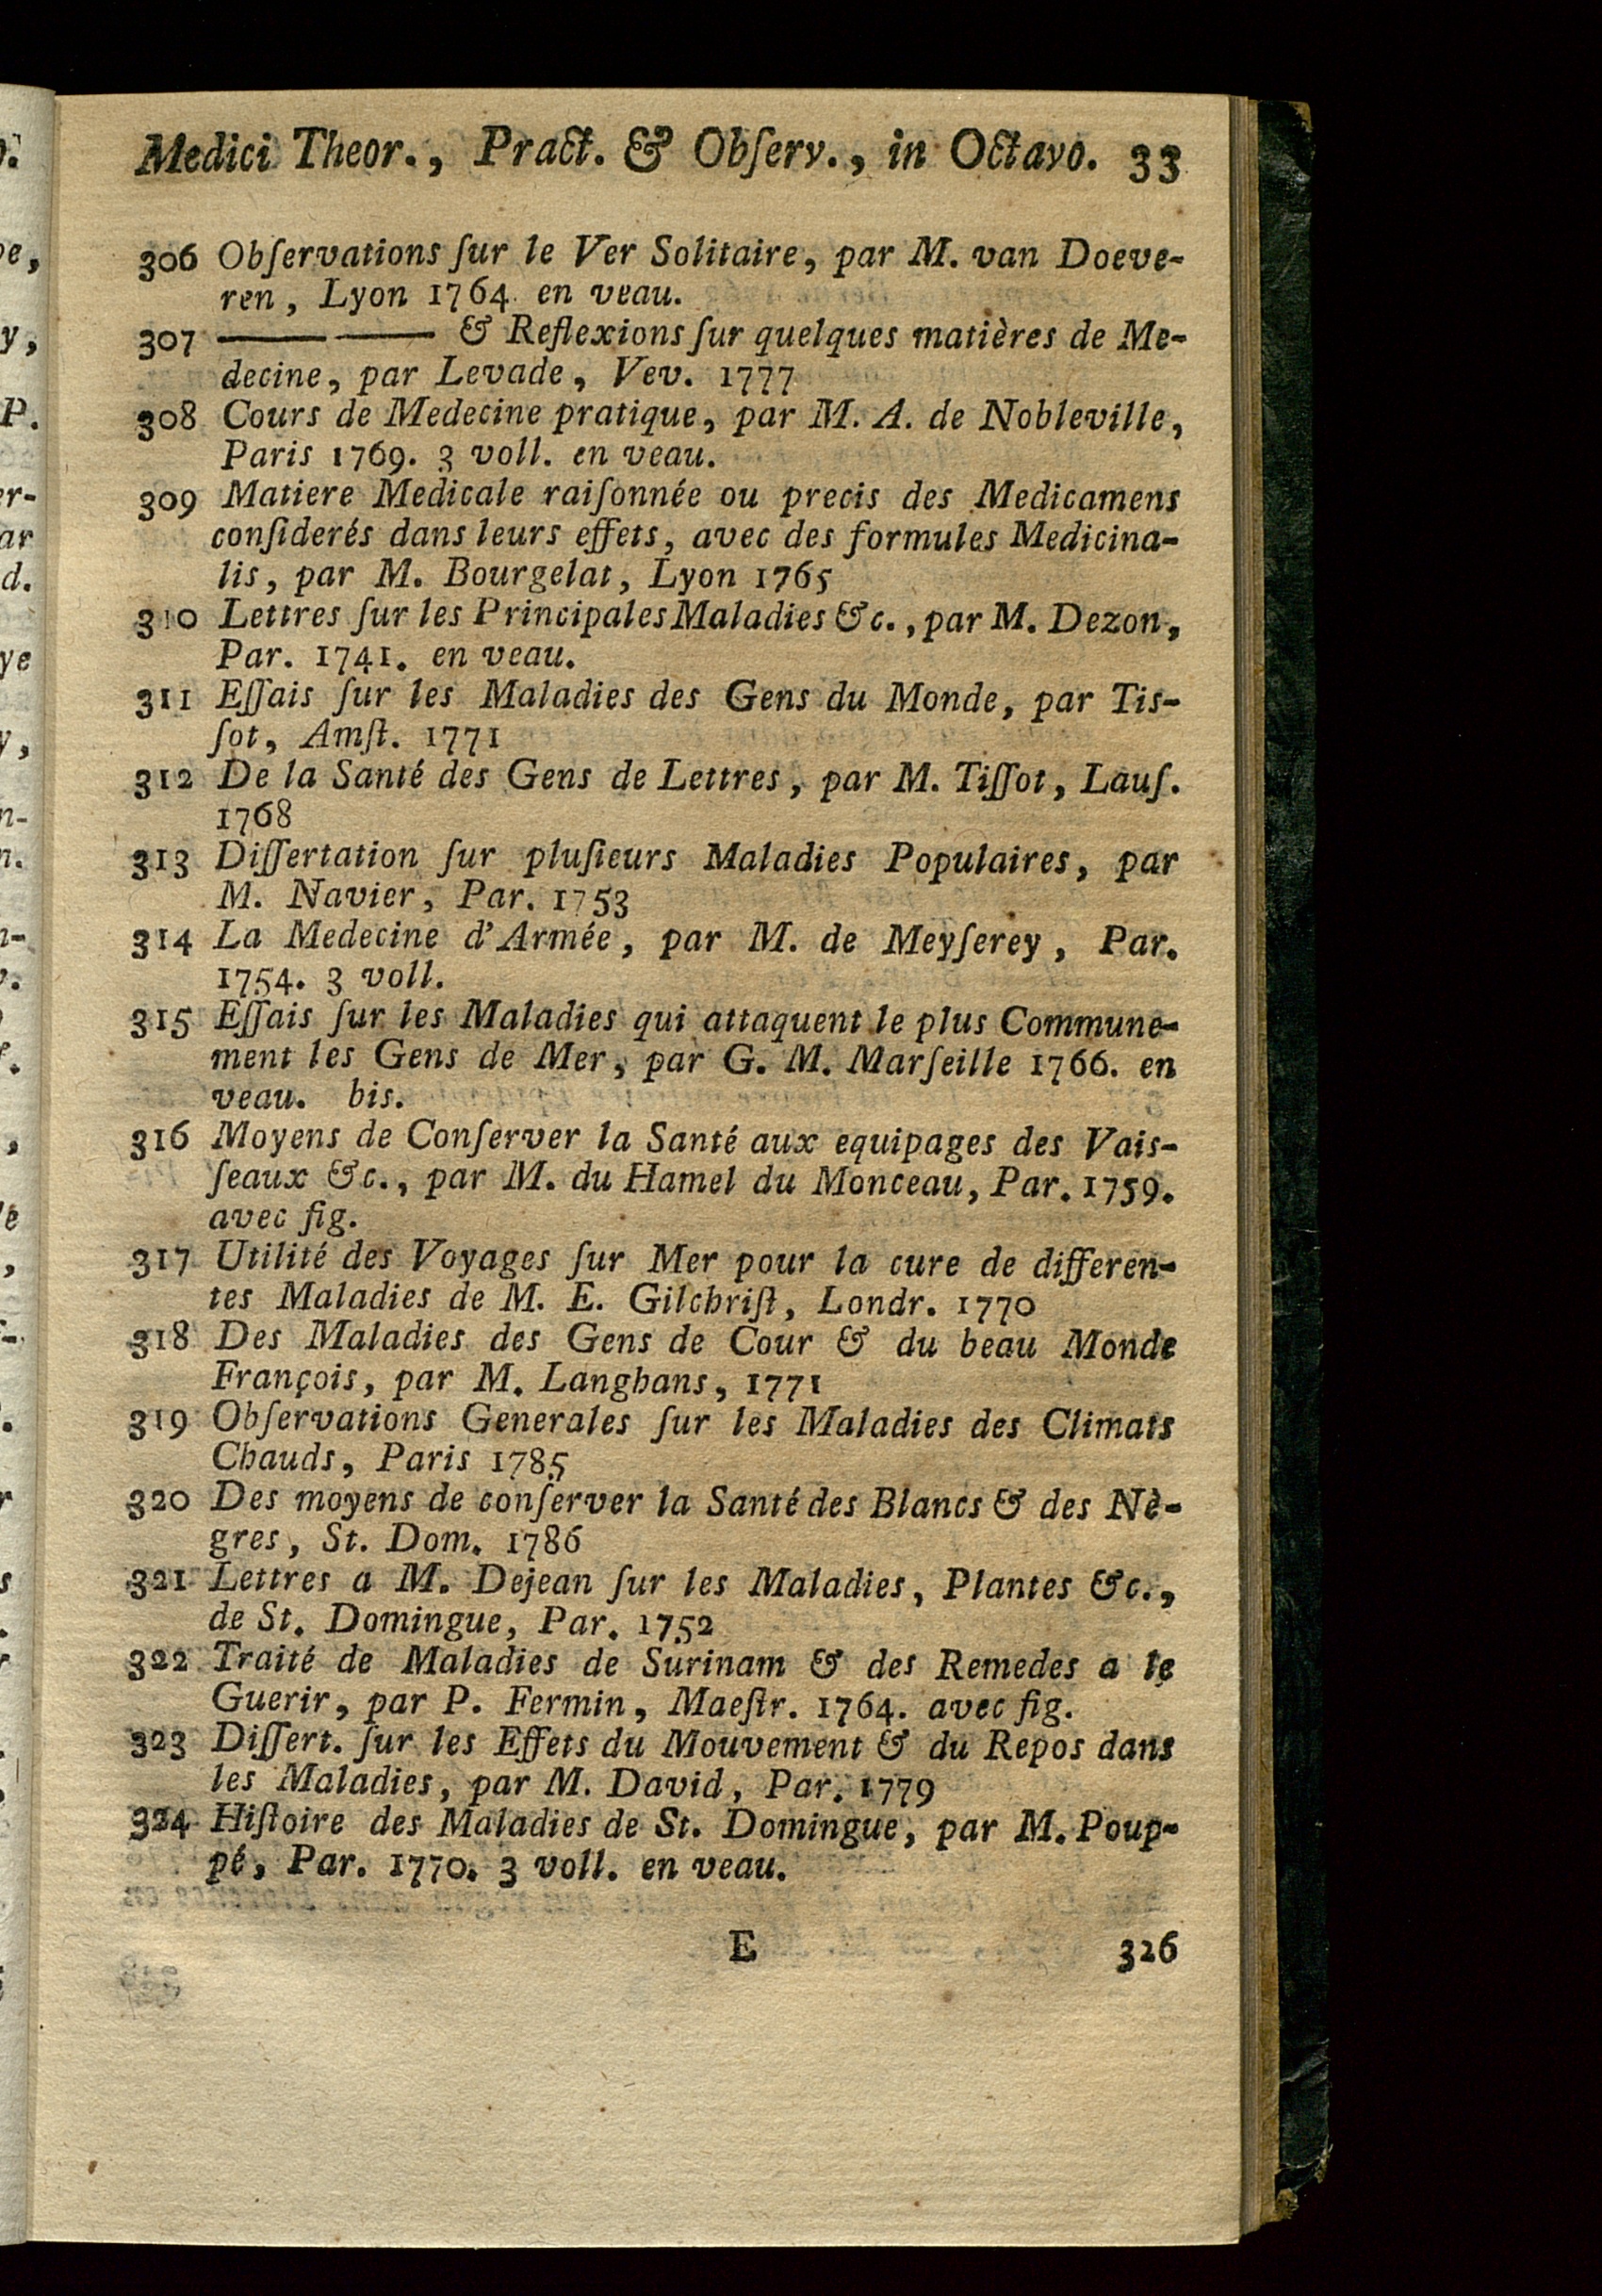 Medici Theor., Pract. & Obſerv., in Octavo. 33
306 Obſervations ſur le Ver Solitaire, par M. van Doeve-
ren, Lyon 1764. en veau.
307 ——— ——— & Reflexions ſur quelques matières de Me-
decine, par Levade, Vev. 1777
308 Cours de Medecine pratique, par M. A. de Nobleville,
Paris 1769. 3 voll. en veau.
309 Matiere Medicale raiſonnée ou precis des Medicamens
conſiderés dans leurs effets, avec des formules Medicina-
lis, par M. Bourgelat, Lyon 1765
310 Lettres ſur les Principales Maladies &c., par M. Dezon,
Par. 1741. en veau.
311 Eſſais ſur les Maladies des Gens du Monde, par Tis-
ſot, Amſt. 1771
312 De la Santé des Gens de Lettres, par M. Tiſſot, Lauſ.
1768
313 Diſſertation ſur pluſieurs Maladies Populaires, par
M. Navier, Par. 1753
314 La Medecine d'Armée, par M. de Meyſerey, Par.
1754. 3 voll.
315 Eſſais ſur les Maladies qui attaquent le plus Commune-
ment les Gens de Mer, par G. M. Marſeille 1766. en
veau. bis.
316 Moyens de Conſerver la Santé aux equipages des Vais-
ſeaux &c., par M. du Hamel du Monceau, Par. 1759.
avec fig.
317 Utilité des Voyages ſur Mer pour la cure de differen-
tes Maladies de M. E. Gilchriſt, Londr. 1770
318 Des Maladies des Gens de Cour & du beau Monde
François, par M. Langhans, 1771
319 Obſervations Generales ſur les Maladies des Climats
Chauds, Paris 1785
320 Des moyens de conſerver la Santé des Blancs & des Nè-
gres, St. Dom. 1786
321 Lettres a M. Dejean ſur les Maladies, Plantes &c.,
de St. Domingue, Par. 1752
322 Traité de Maladies de Surinam & des Remedes a le
Guerir, par P. Fermin, Maeſtr. 1764. avec fig.
323 Diſſert. ſur les Effets du Mouvement & du Repos dans
les Maladies, par M. David, Par. 1779
324 Hiſtoire des Maladies de St. Domingue, par M. Poup-
pé, Par. 1770. 3 voll. en veau.
E 326